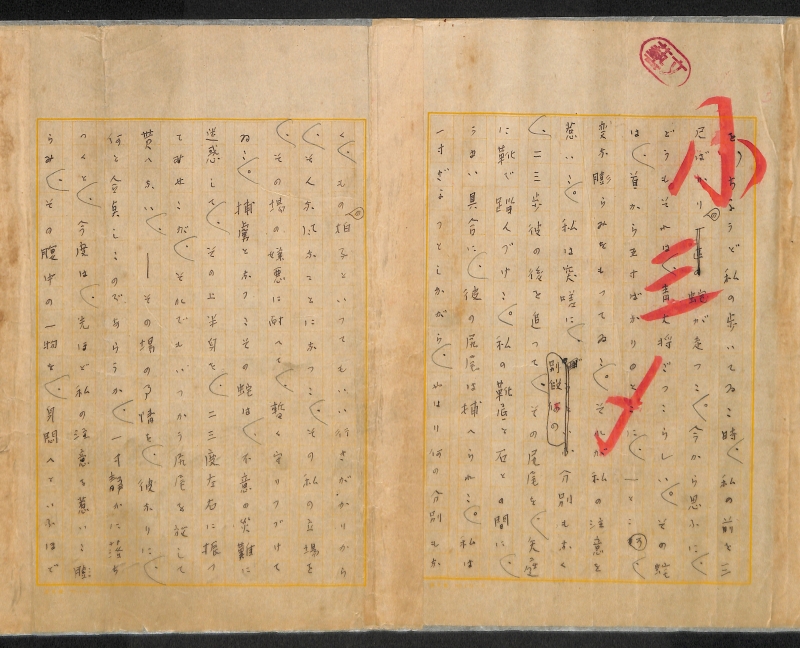 文藝
小三
を）ちやうど私の歩いてゐた時、私の前を三
尺ばかりの蛇が走つた。今から思ふに、
どうもそれは、青大将だつたらしい。その蛇
は、首から五寸ばかりのところに、一ところ
変な膨らみをもつてゐた。それが私の注意を
惹いた。私は突嗟に、別段何の分別もなく
、二三歩彼の後を追つて、その尻尾を、矢庭
に靴で踏んづけた。私の靴底と石との間に
うまい具合に、彼の尻尾は捕へられた。私は
一寸ぎよつとしながら、やはり何の分別もな
く、その拍子といつてもいい行きがかりから
、そんな風なことになつた、その私の立場を
、その場の嫌悪に耐へて、暫く守りつづけて
ゐた。捕虜となつたその蛇は、不意の災難に
迷惑して、その上半身を、二三度左右に振つ
てみせたが、それでもいつかう尻尾を放して
貰へない、――その場の事情を、彼なりに、
何と合点したのであらうか、一寸静かに落ち
つくと、今度は、先ほど私の注意を惹いた膨
らみ、その腹中の一物を、身悶へといふほど